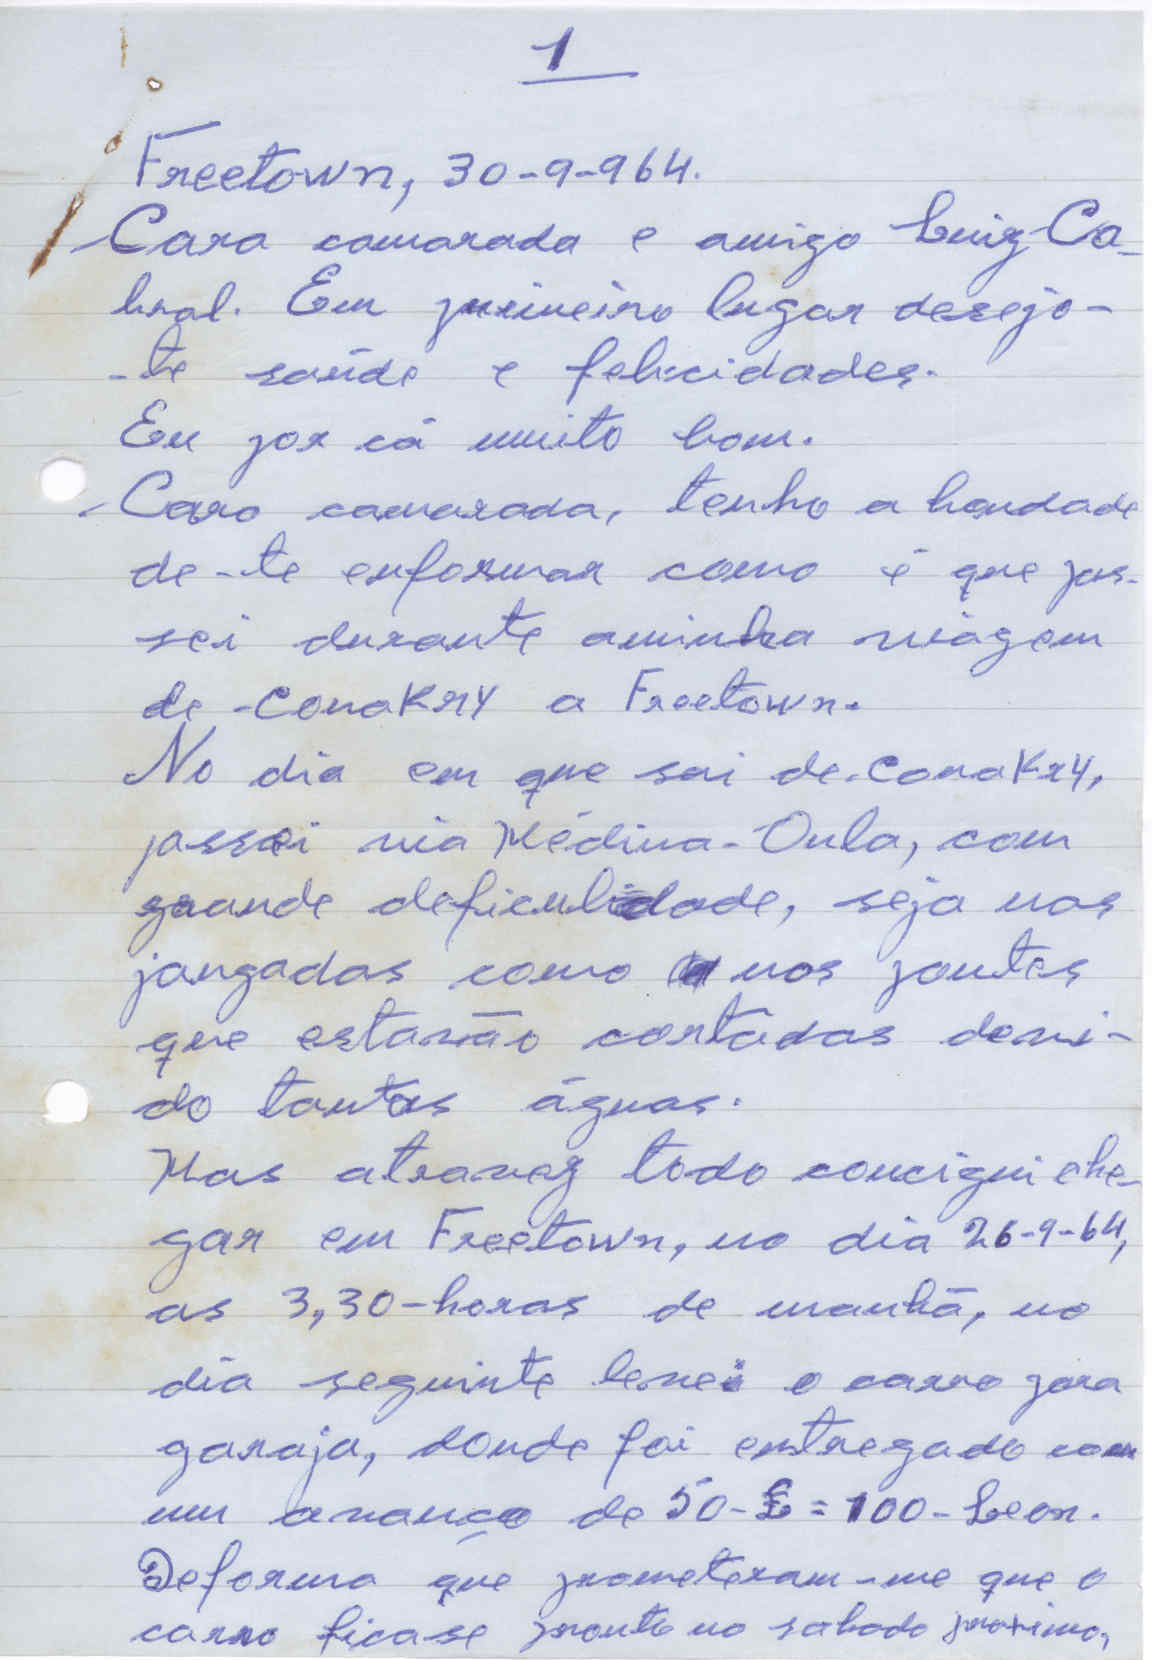 1
Freetown, 30-9-964.
Caro camarada e amigo Luiz Ca-
bral. Em primeiro lugar desejo-
-te saúde e felicidades.
Eu por cá muito bom.
Caro camarada, tenho a bondade
de-te enformar como é que pas-
sei durante aminha viagem
de -ConaKry a Freetown.
No dia em que sai de-ConaKry,
passei via Médina-Oula, com
grande deficulidade, seja nas
jangadas como nos pontes
que estavão cortadas devi-
do tantas águas.
Mas atravez todo concigui che-
gar em Freetown, no dia 26-9-64,
as 3,30-horas de manhã, no
dia seguinte levei o carro para
garaja, donde foi entregado com
um avanço de 50-£=100-Leon.
Deforma que prometeram-me que o
carro ficase pronto no sabado proximo,